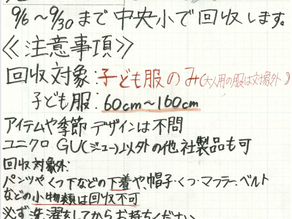 9/6～9/30まで中央小で回収します。
≪注意事項≫
回収対象:子ども服のみ(大人用の服は対象外)
子ども服:60cm～160cm
アイテムや季節 デザインは不問
ユニクロ GU(ジーユー)以外の他社製品も可
回収対象外:
パンツやくつ下などの下着や、帽子・くつ・マフラー、ベルト
などの小物類は回収不可
必ず洗濯をしてからお持ちください